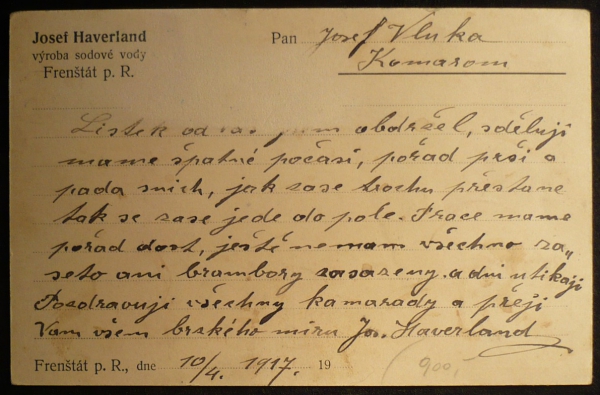 Josef Haverland
výroba sodové vody
Frenštát p. R.
Pan Josef Vluka
Komarom
Listek od vas jsem obdržel, sděluji
mame špatné počasí, pořad prší a
pada snich, jak zase trochu přestane
tak se zase jede do pole. Prace mame
pořád dost, ještě nemam všechno za„
seto ani brambory zasazeny. a dni utikaji
Pozdravuji všechny kamarady a přeji
Vam všem brského míru Jos. Haverland
Frenštát p. R., dne 10/4. 1917. 19
(900,